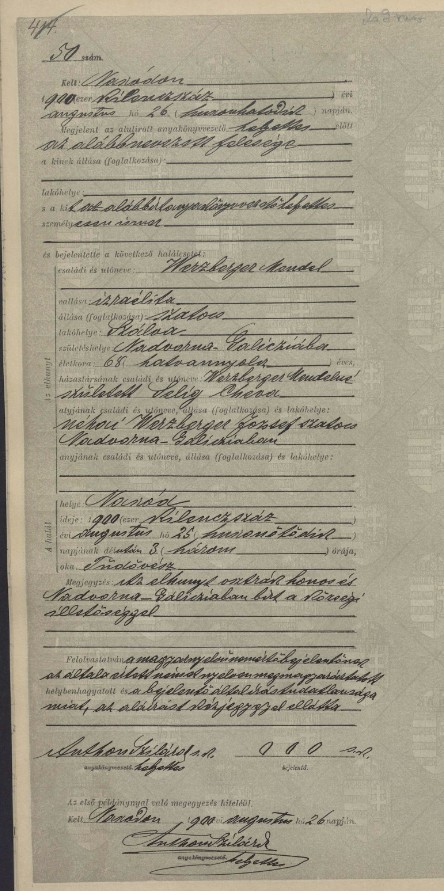 50 szám.
Kelt Naszódon
1900 ezer kilenczszáz évi
augusztus hó 26 (huszonhatodik) napján.
Megjelent az alulirott anyakönyvvezető helyettes előtt
az alább nevezett felesége
a kinek állása (foglalkozása):
lakóhelye
s a kit az alább írt anyakönyvvezető helyettes
személyesen ismer
és bejelentette a következő halálesetet:
családi és utóneve: Werzberger Mendel
vallása: izraélita
állása (foglalkozása): szatocs
lakóhelye: Szálva
születéshelye Nadvorna-Galicziába
életkora: 68. hatvannyolc éves,
házastársának családi és utóneve: Werzberger Mendelné
született Selig Cheva
atyjának családi és utóneve, állása (foglalkozása) és lakóhelye:
néhai Werzberger József szatocs
Nadvorna-Galicziaban
anyjának családi és utóneve, állása (foglalkozása) és lakóhelye:
Az elhunyt
helye: Naszód
ideje: 1900 (ezer kilenczszáz)
évi augusztus hó 25 (huszonötödik)
napjának délután 3. (három) órája,
oka: Tüdővész
A halál
Megjegyzés: Az elhunyt osztrák honos és
Nadvorna-Galicziaban birt a községi
illetőséggel
Felolvastatván a magyar nyelvet nem értő bejelentőnek
az általa értett német nyelven megmagyaráztatott
helybenhagyatott és a bejelentő általa írástudatlansága
miatt, az aláírást kézjegygyel ellátta
Anthon Szilárd s.k.
anyakönyvvezető. helyettes
s.k.
bejelentő.
Az első példánynyal való megegyezés hiteléül.
Kelt. Naszódon 1900 évi augusztus hó 26 napján.
Anthon Szilárd
anyakönyvvezető.
helyettes